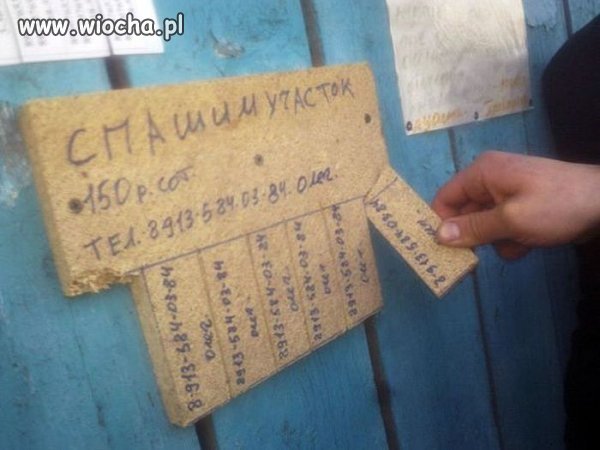 www.wiocha.pl
СПАШИМ УЧАСТОК
150 р. сот.
ТЕЛ. 8913-584-03-84. Олег.
8-913-584-03-84
Олег.
8913-584-03-84
Олег.
8913-584-03-84
Олег.
8913-584-03-84
Олег.
8913-584-03-84
Олег.
8-913-584-03-84
Олег.